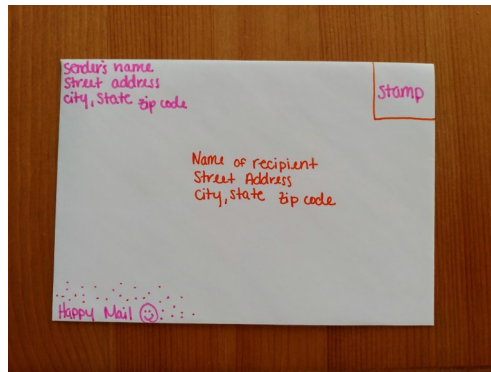 Sender's name
Street address
City, State zip code
Stamp
Name of recipient
Street Address
City, State zip code
Happy Mail